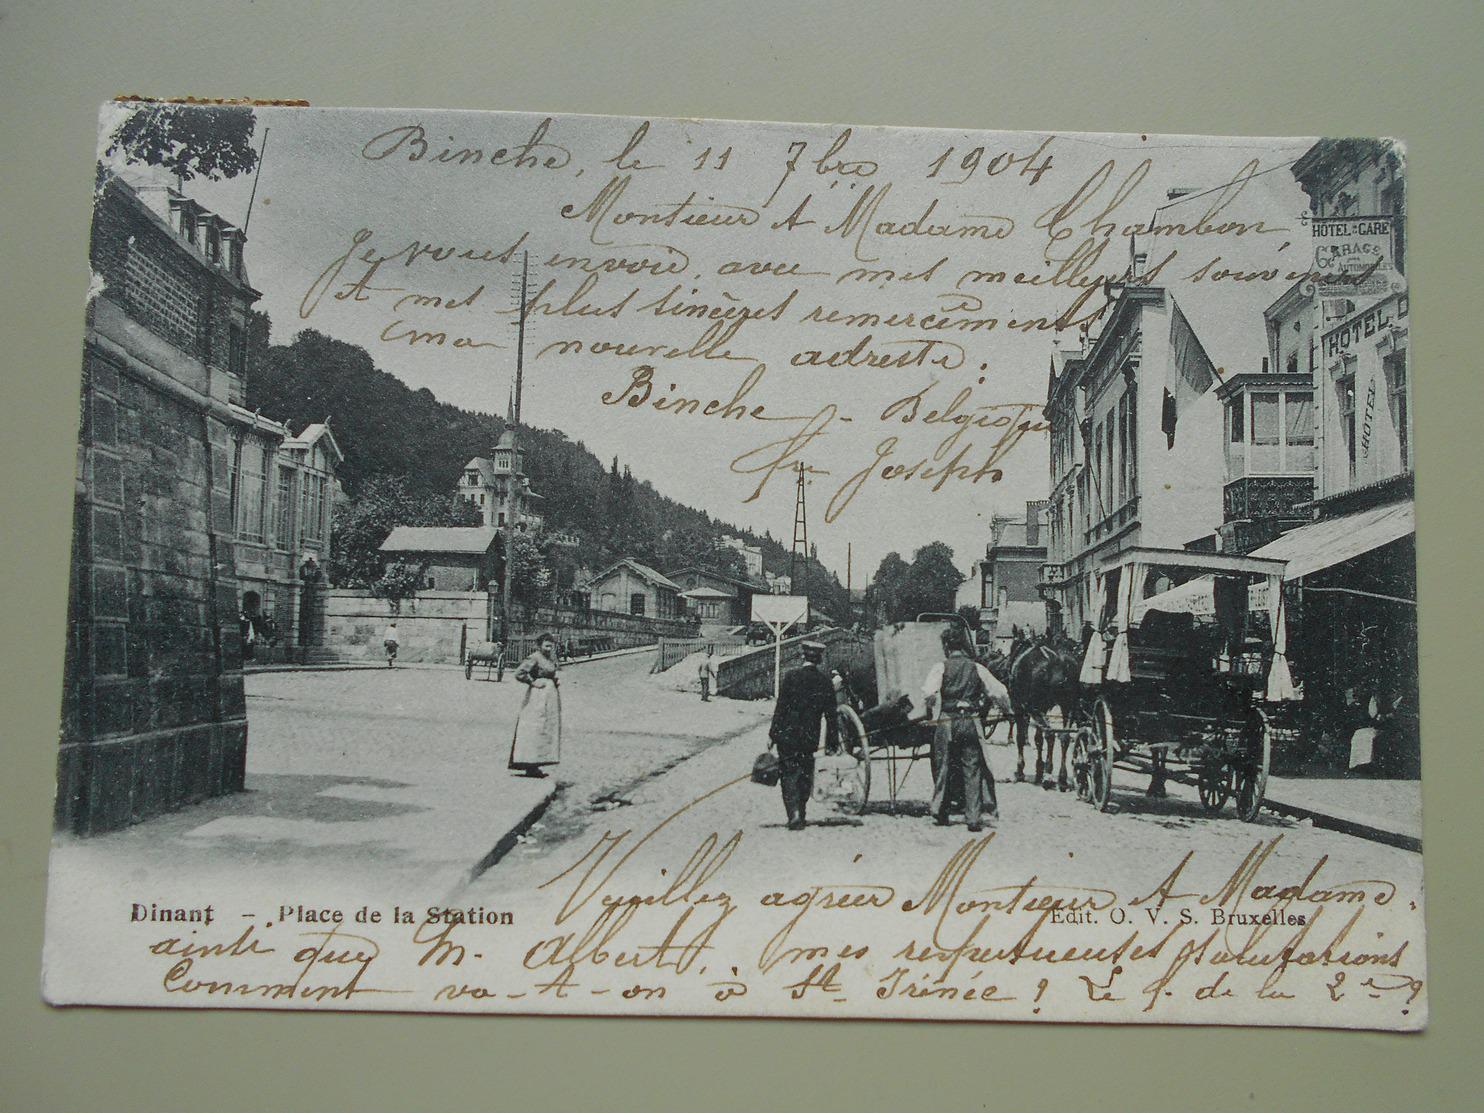 Binche, le 11 7bre 1904
Monsieur et Madame Chambon,
Je vous envoie, avec mes meilleurs souvenirs
et mes plus sincères remerciements
ma nouvelle adresse.
Binche - Belgique
fr. Joseph
HÔTEL DE GARE
GARAGE
POUR AUTOMOBILES
HÔTEL D
HÔTEL
Veuillez agréer Monsieur et Madame,
Dinant - Place de la Station
Edit. O. V. S. Bruxelles
ainsi que M. Albert, mes respectueuses salutations
Comment va-t-on à St Irénée? Le f. de la 2e?